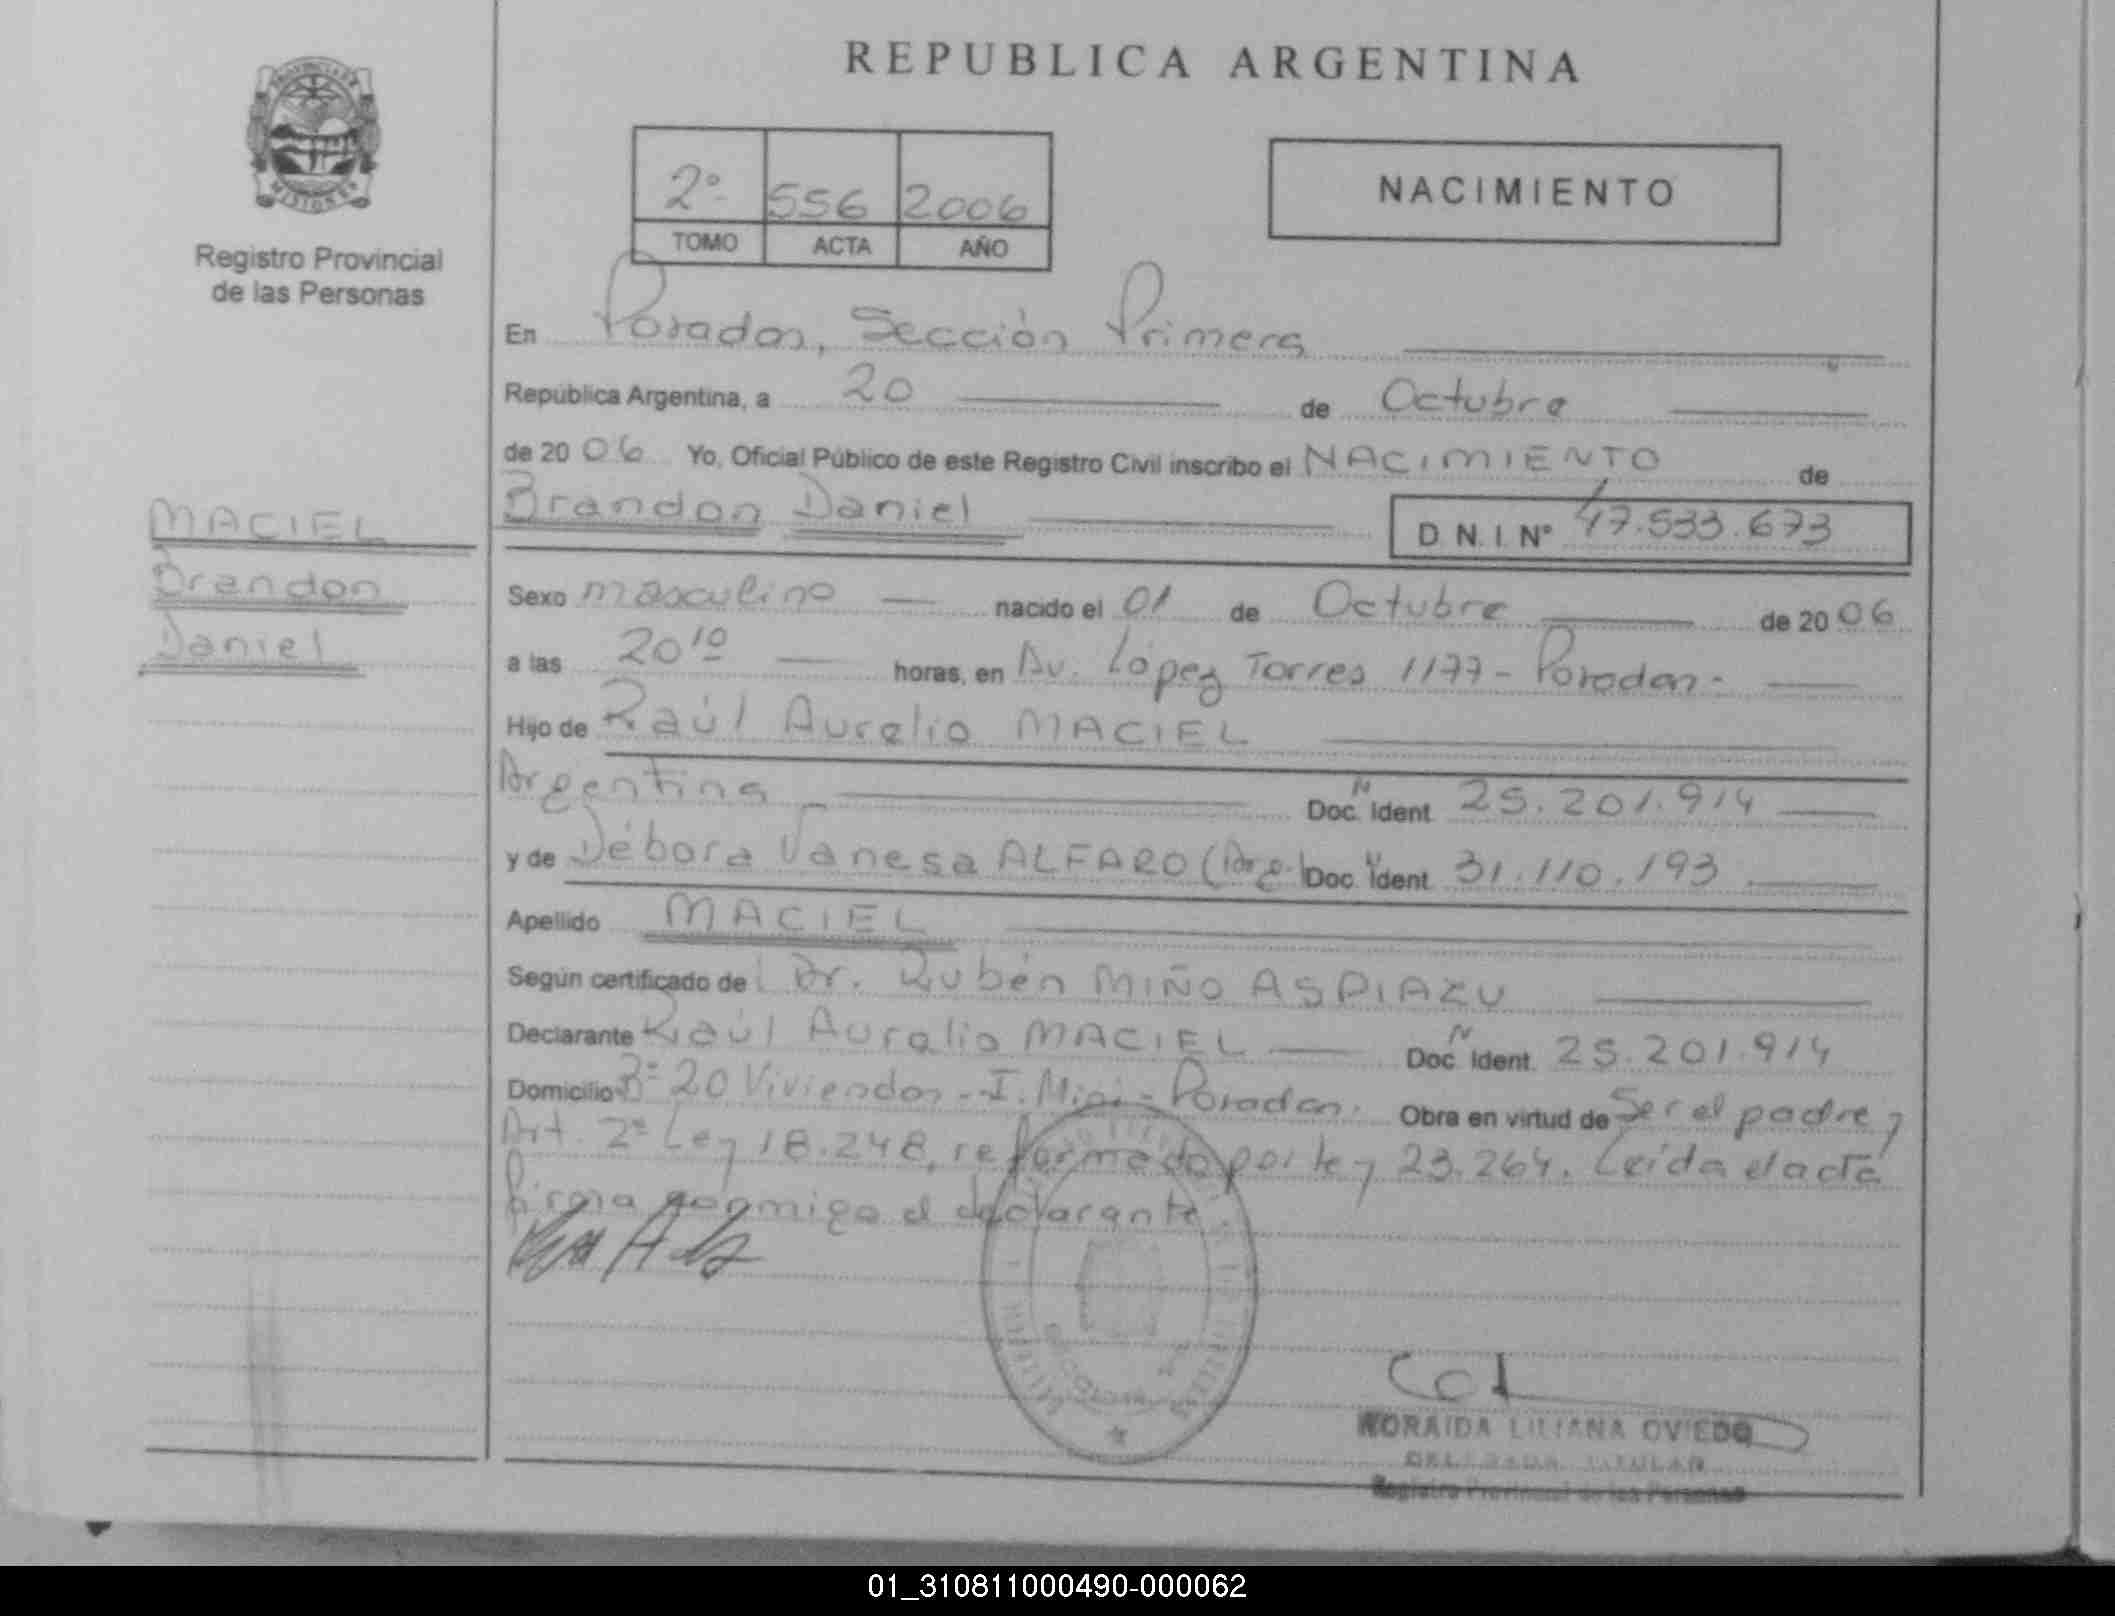 REPUBLICA ARGENTINA
PROVINCIA DE
MISIONES
Registro Provincial
de las Personas
2º 556 2006
TOMO ACTA AÑO
NACIMIENTO
En Posadas, Sección Primera
República Argentina, a 20 de Octubre
de 20 06 Yo, Oficial Público de este Registro Civil inscribo el NACIMIENTO de
Brandon Daniel D.N.I. Nº 47.533.673
MACIEL
Brandon
Daniel
Sexo masculino nacido el 01 de Octubre de 20 06
a las 20 10 horas, en Av. López Torres 1177 - Posadas-
Hijo de Raúl Aurelio MACIEL
Argentina Doc. N Ident. 25.201.914
y de Débora Vanesa ALFARO (Arg.) Doc. N Ident. 31.110.193
Apellido MACIEL
Según certificado de Dr. Rubén MIÑO ASPIAZU
Declarante Raúl Aurelio MACIEL Doc. N Ident. 25.201.914
Domicilio Bº 20 Viviendas - I. Miní - Posadas. Obra en virtud de Ser el padre y
Art. 2º Ley 18.248, reformado por ley 23.264. Leída el acta
firma conmigo el declarante.
NORAIDA LILIANA OVIEDO
DELEGADA TITULAR
Registro Provincial de las Personas
01_310811000490-000062